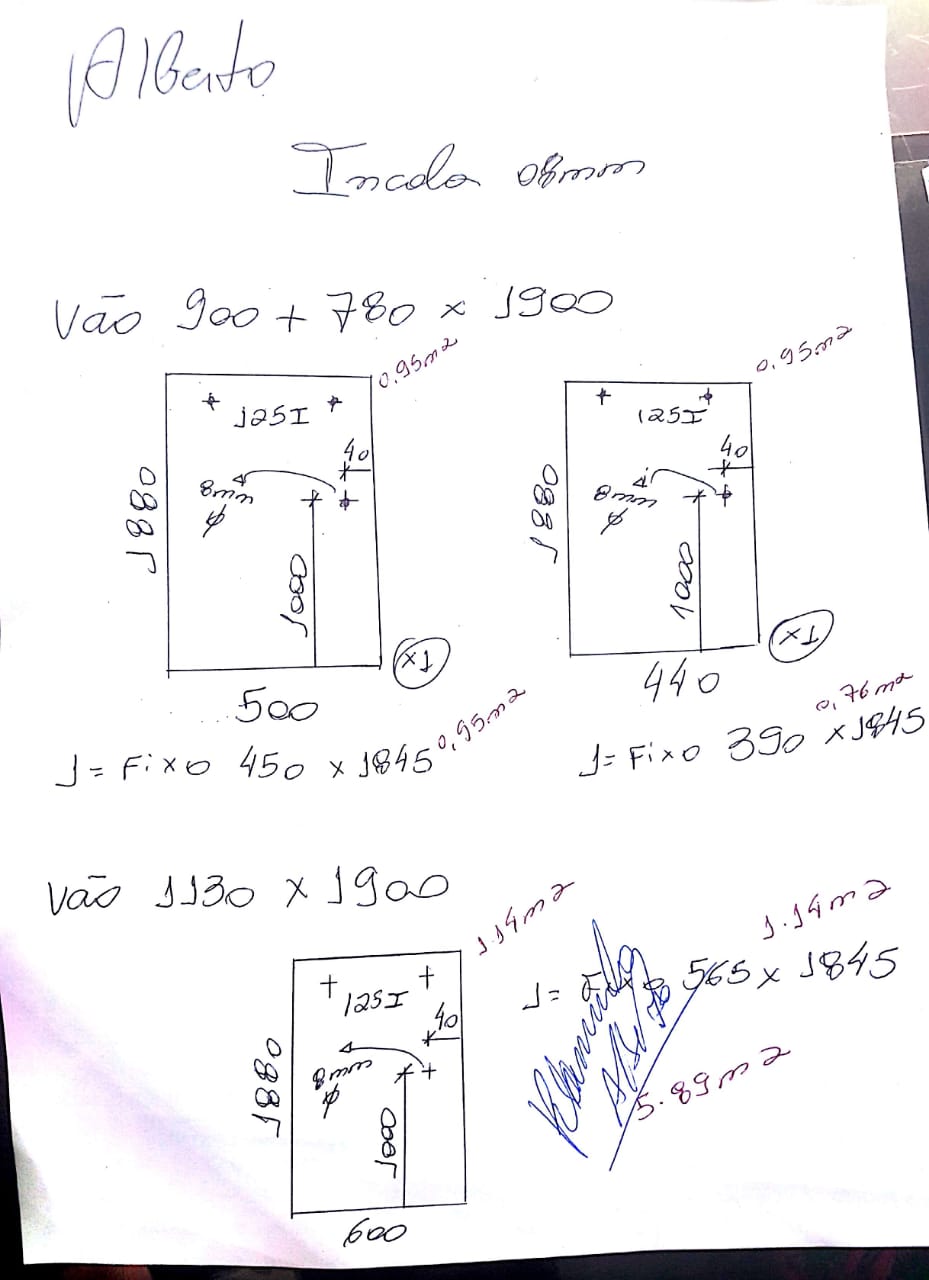 Alberto
Incolor 08mm
Vão 900 + 780 x 1900
0,95m2
125I
40
8mm
ϕ
1880
1000
x1
500
1= Fixo 450 x 1845
0,95m2
0,95m2
125I
40
8mm
ϕ
1880
1000
x1
440
1= Fixo 390 x 1845
0,76m2
Vão 1130 x 1900
1.14m2
125I
40
8mm
ϕ
1880
1000
600
1= 565 x 1845
1.14m2
5.89m2